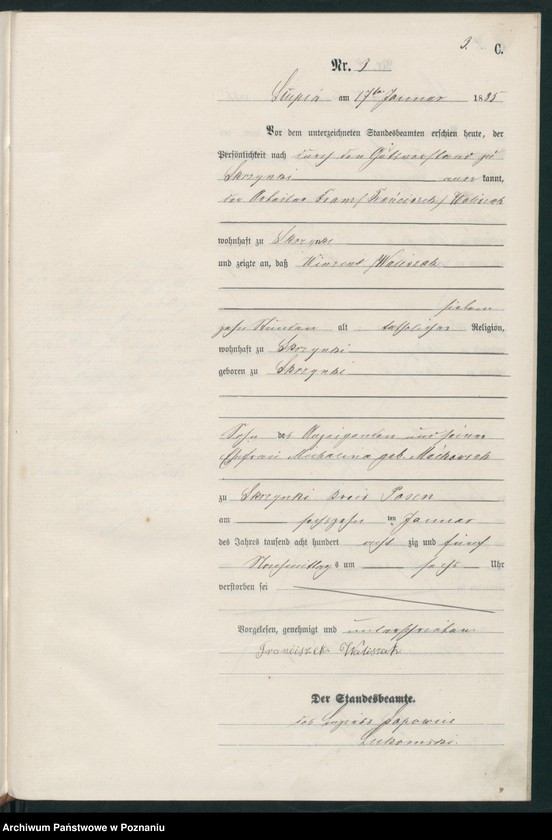 3. C.
Nr. 3
Słupia am 17ten Januar 1885
Vor dem unterzeichneten Standesbeamten erschien heute, der
Persönlichkeit nach durch den Gutsvorstand zu
Skrzynki anerkannt,
der Arbeiter Franz (Franciszek) Walczak
wohnhaft zu Skrzynki
und zeigte an, daß Vincent Walczak
sieben
zehn Stunden alt katholischer Religion,
wohnhaft zu Skrzynki
geboren zu Skrzynki
Sohn des Anzeigenden und seiner
Ehefrau Michalina geb. Maćkowiak
zu Skrzynki Kreis Posen
am sechszehn ten Januar
des Jahres tausend acht hundert acht zig und fünf
Nachmittags um sechs Uhr
verstorben sei
Vorgelesen, genehmigt und unterschrieben
Franciszek Waliszak
Der Standesbeamte.
Łukomski.
Archiwum Państwowe w Poznaniu